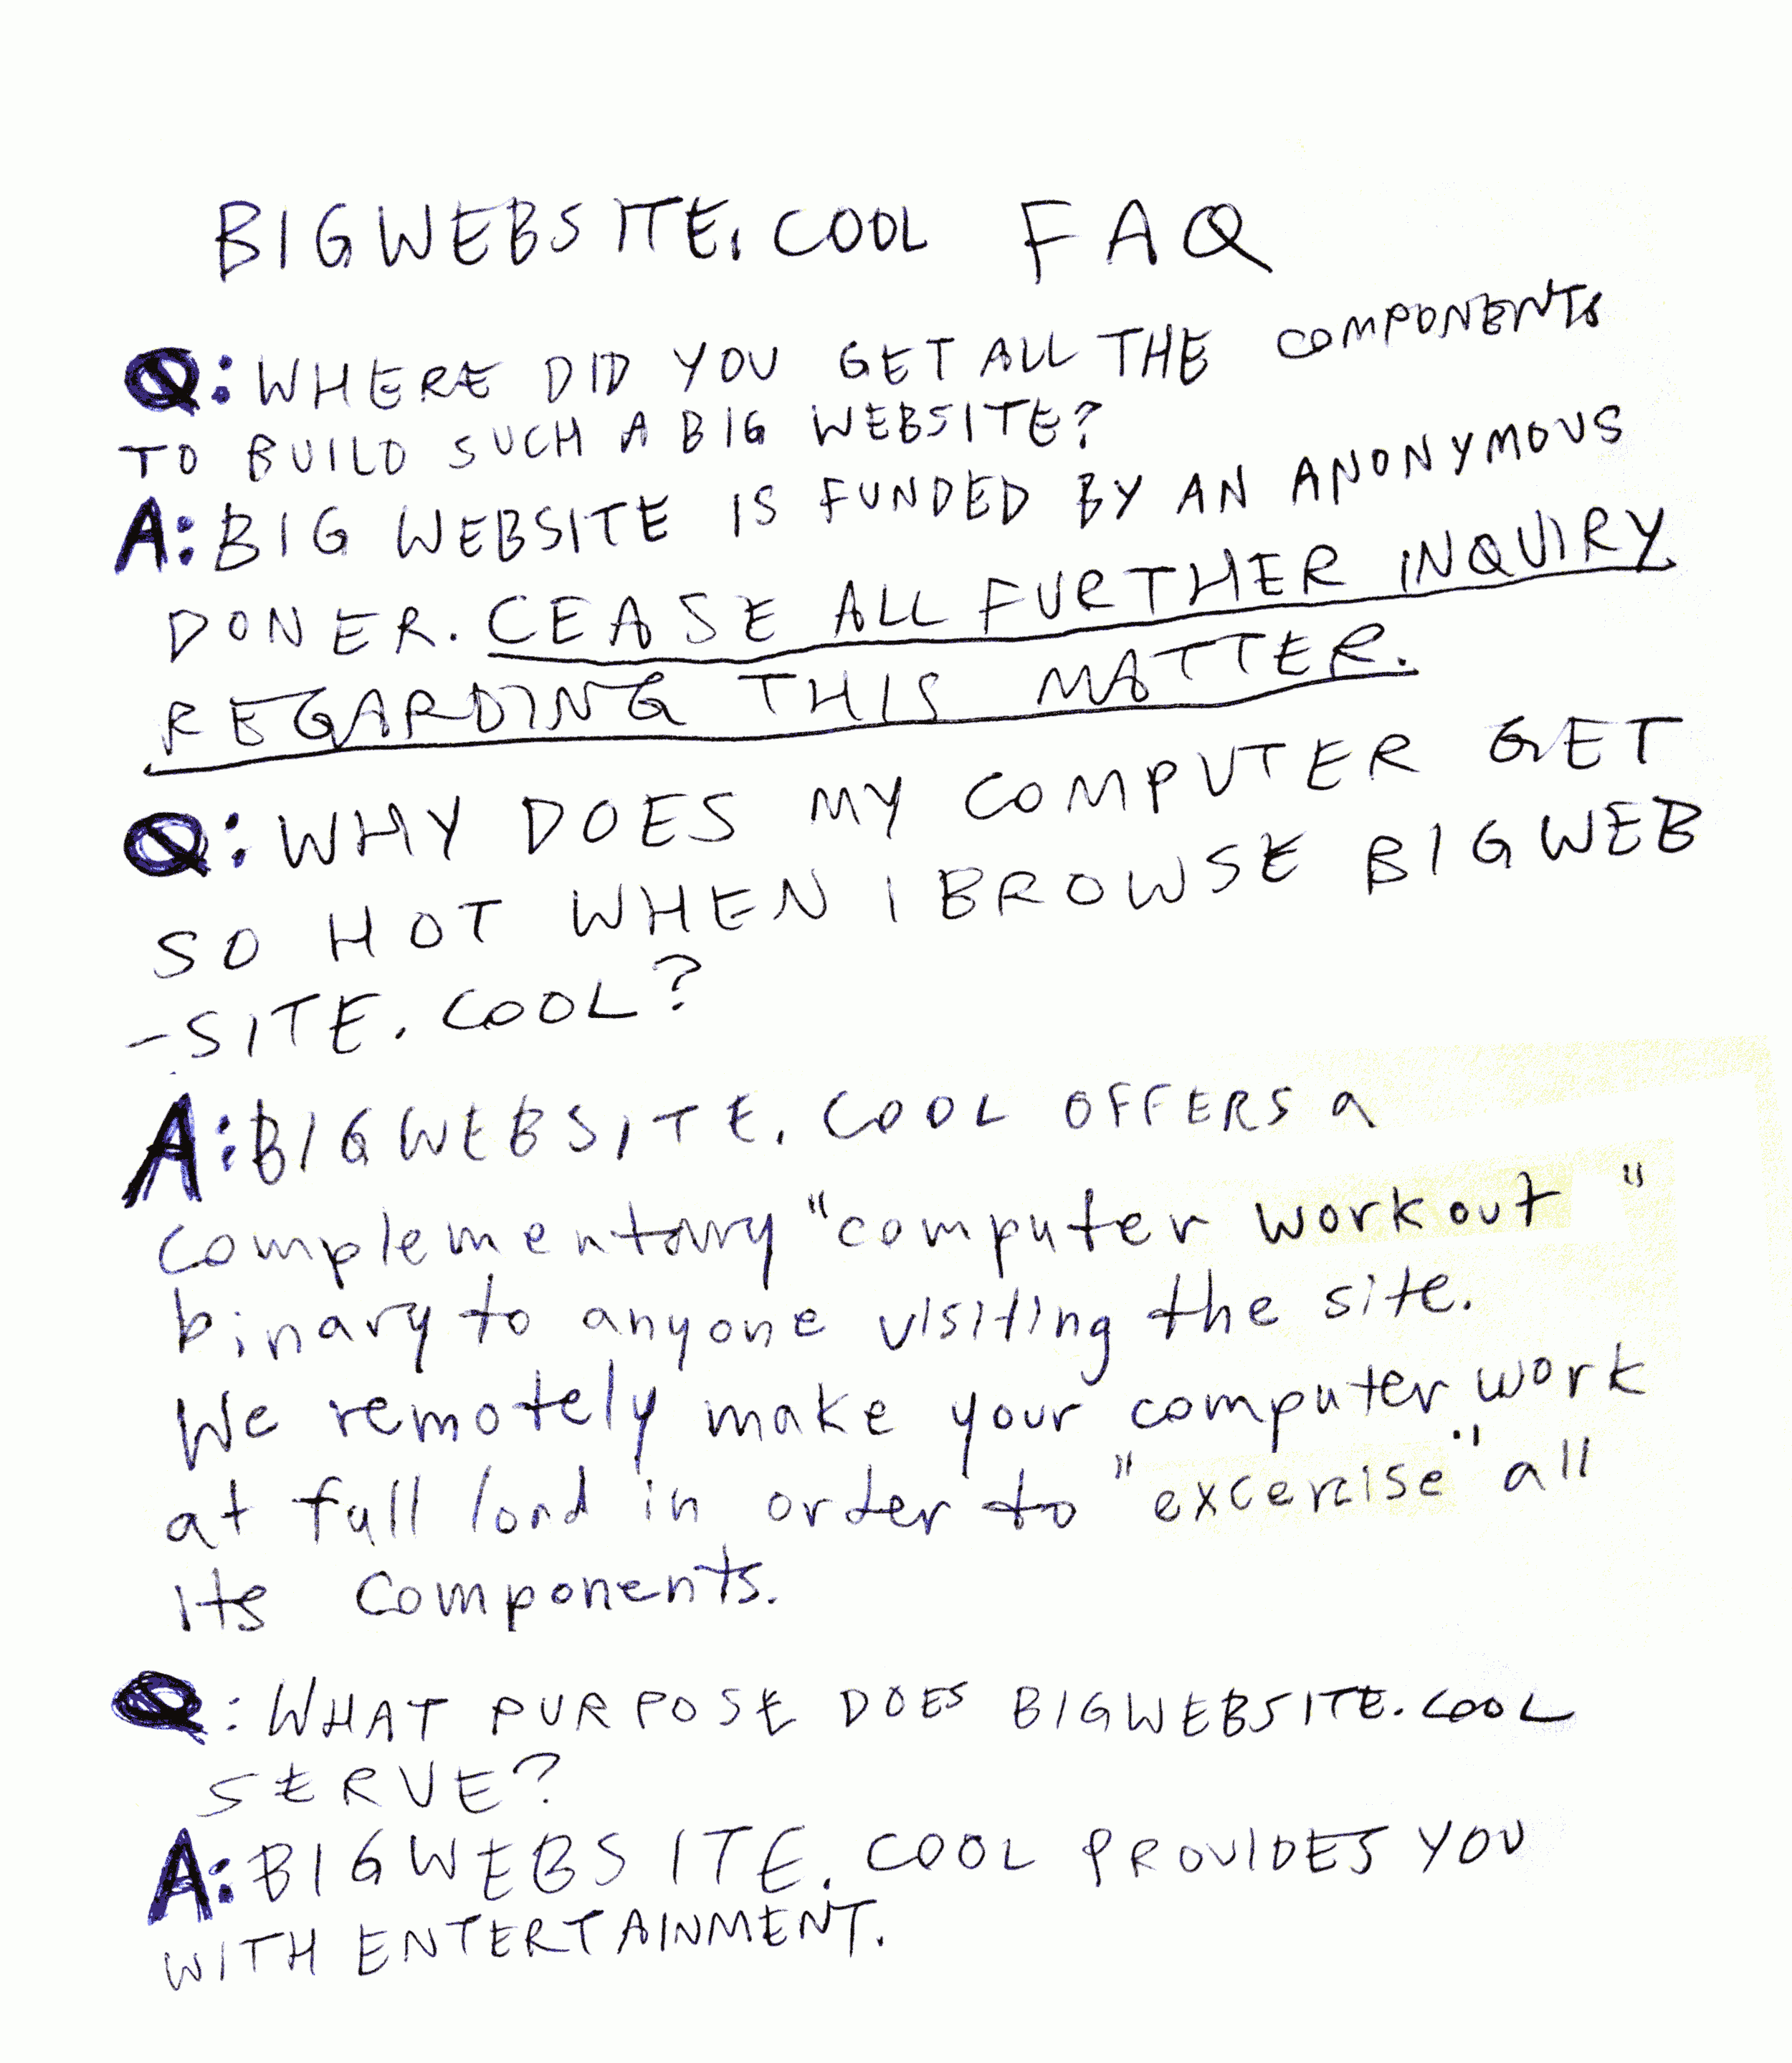 BIGWEBSITE.COOL FAQ
Q: WHERE DID YOU GET ALL THE COMPONENTS
TO BUILD SUCH A BIG WEBSITE?
A: BIG WEBSITE IS FUNDED BY AN ANONYMOUS
DONER. CEASE ALL FURTHER INQUIRY
REGARDING THIS MATTER.
Q: WHY DOES MY COMPUTER GET
SO HOT WHEN I BROWSE BIGWEB
-SITE.COOL?
A: BIGWEBSITE.COOL OFFERS a
complementary "computer workout"
binary to anyone visiting the site.
We remotely make your computer work
at full load in order to "excercise" all
its components.
Q: WHAT PURPOSE DOES BIGWEBSITE.COOL
SERVE?
A: BIGWEBSITE.COOL PROVIDES YOU
WITH ENTERTAINMENT.